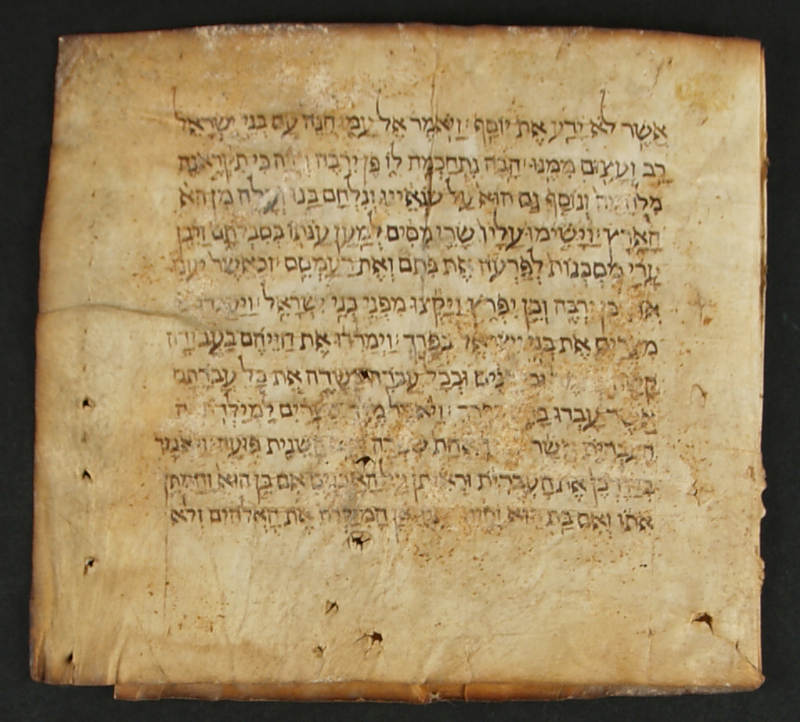 אשר לא ידע את יוסף ויאמר אל עמו הנה עם בני ישראל
רב ועצום ממנו הבה נתחכמה לו פן ירבה כי תקראנה
מלחמה ונוסף גם הוא על שנאינו ונלחם בנו ועלה מן הא
הארץ וישימו עליו שרי מסים למען ענתו בסבלתם ויבן
ערי מסכנות לפרעה את פתם ואת רעמסס וכאשר יענו
כן ירבה וכן יפרץ ויקצו מפני בני ישראל
מצרים את בני ישראל בפרך וימררו את חייהם בעבודה
ובכל עבדה בשדה את כל עבדתם
אשר עבדו בפרך ויאמר מלך מצרים למילדת
העבריות אשר האחת שפרה השנית פועה ויאמר
בילדכן את העבריות וראיתן על האבנים אם בן הוא והמתן
אתו ואם בת הוא המילדת את האלהים ולא